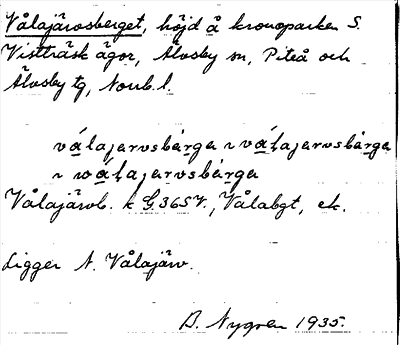 Vålajärvsberget, höjd å kronoparken S.
Vistträsk ägor, Älvsby sn, Piteå och
Älvsby tg, Norrb. l.
vålajervsbärga ~ vålajervsbärga
~ wålajervsbärga
Vålajärvb. k G.365V., Vålabgt, ek.
Ligger N. Vålajärv.
B. Nygren 1935.